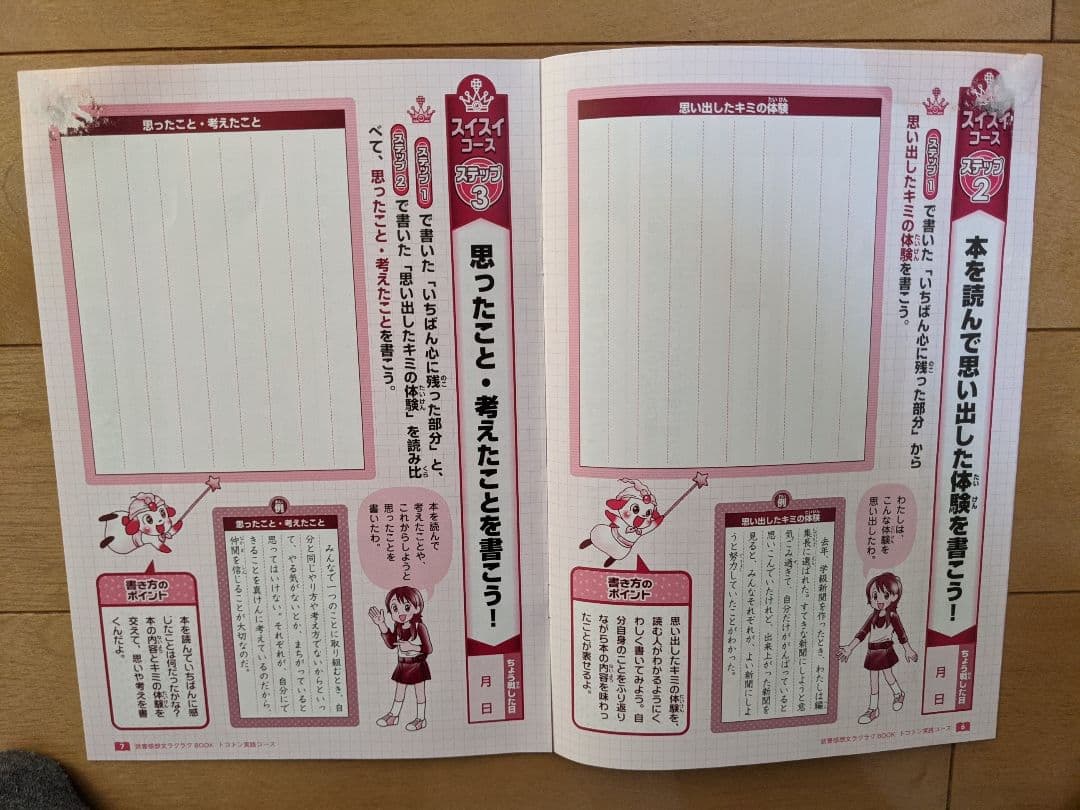 スイスイ
コース
ステップ
2
本を読んで思い出した体験を書こう！
たいけん
ちょう戦した日
月　日
ステップ1で書いた「いちばん心に残った部分」から
思い出したキミの体験を書こう。
思い出したキミの体験
わたしは、
こんな体験を
思い出したわ。
例
思い出したキミの体験
去年、学級新聞を作ったとき、わたしは編
集長に選ばれた。すてきな新聞にしようと意
気ごみ過ぎて、自分だけががんばっていると
思いこんでいたけれど、出来上がった新聞を
見ると、みんなそれぞれが、よい新聞にしよ
うと努力していたことがわかった。
書き方の
ポイント
思い出したキミの体験を、
読む人がわかるようにく
わしく書いてみよう。自
分自身のことをふり返り
ながら本の内容を味わっ
たことが表せるよ。
読書感想文ラクラクBOOK　トコトン実践コース　6
スイスイ
コース
ステップ
3
思ったこと・考えたことを書こう！
ちょう戦した日
月　日
ステップ1で書いた「いちばん心に残った部分」と、
ステップ2で書いた「思い出したキミの体験」を読み比
べて、思ったこと・考えたことを書こう。
思ったこと・考えたこと
本を読んで
考えたことや、
これからしようと
思ったことを
書いたわ。
例
思ったこと・考えたこと
みんなで一つのことに取り組むとき、自
分と同じやり方や考え方でないからといっ
て、やる気がないとか、まちがっていると
思ってはいけない。それぞれが、自分にで
きることを真けんに考えているのだから、
仲間を信じることが大切なのだ。
書き方の
ポイント
本を読んでいちばんに感
じたことは何だったかな？
本の内容とキミの体験を
交えて、思いや考えを書
くんだよ。
7　読書感想文ラクラクBOOK　トコトン実践コース